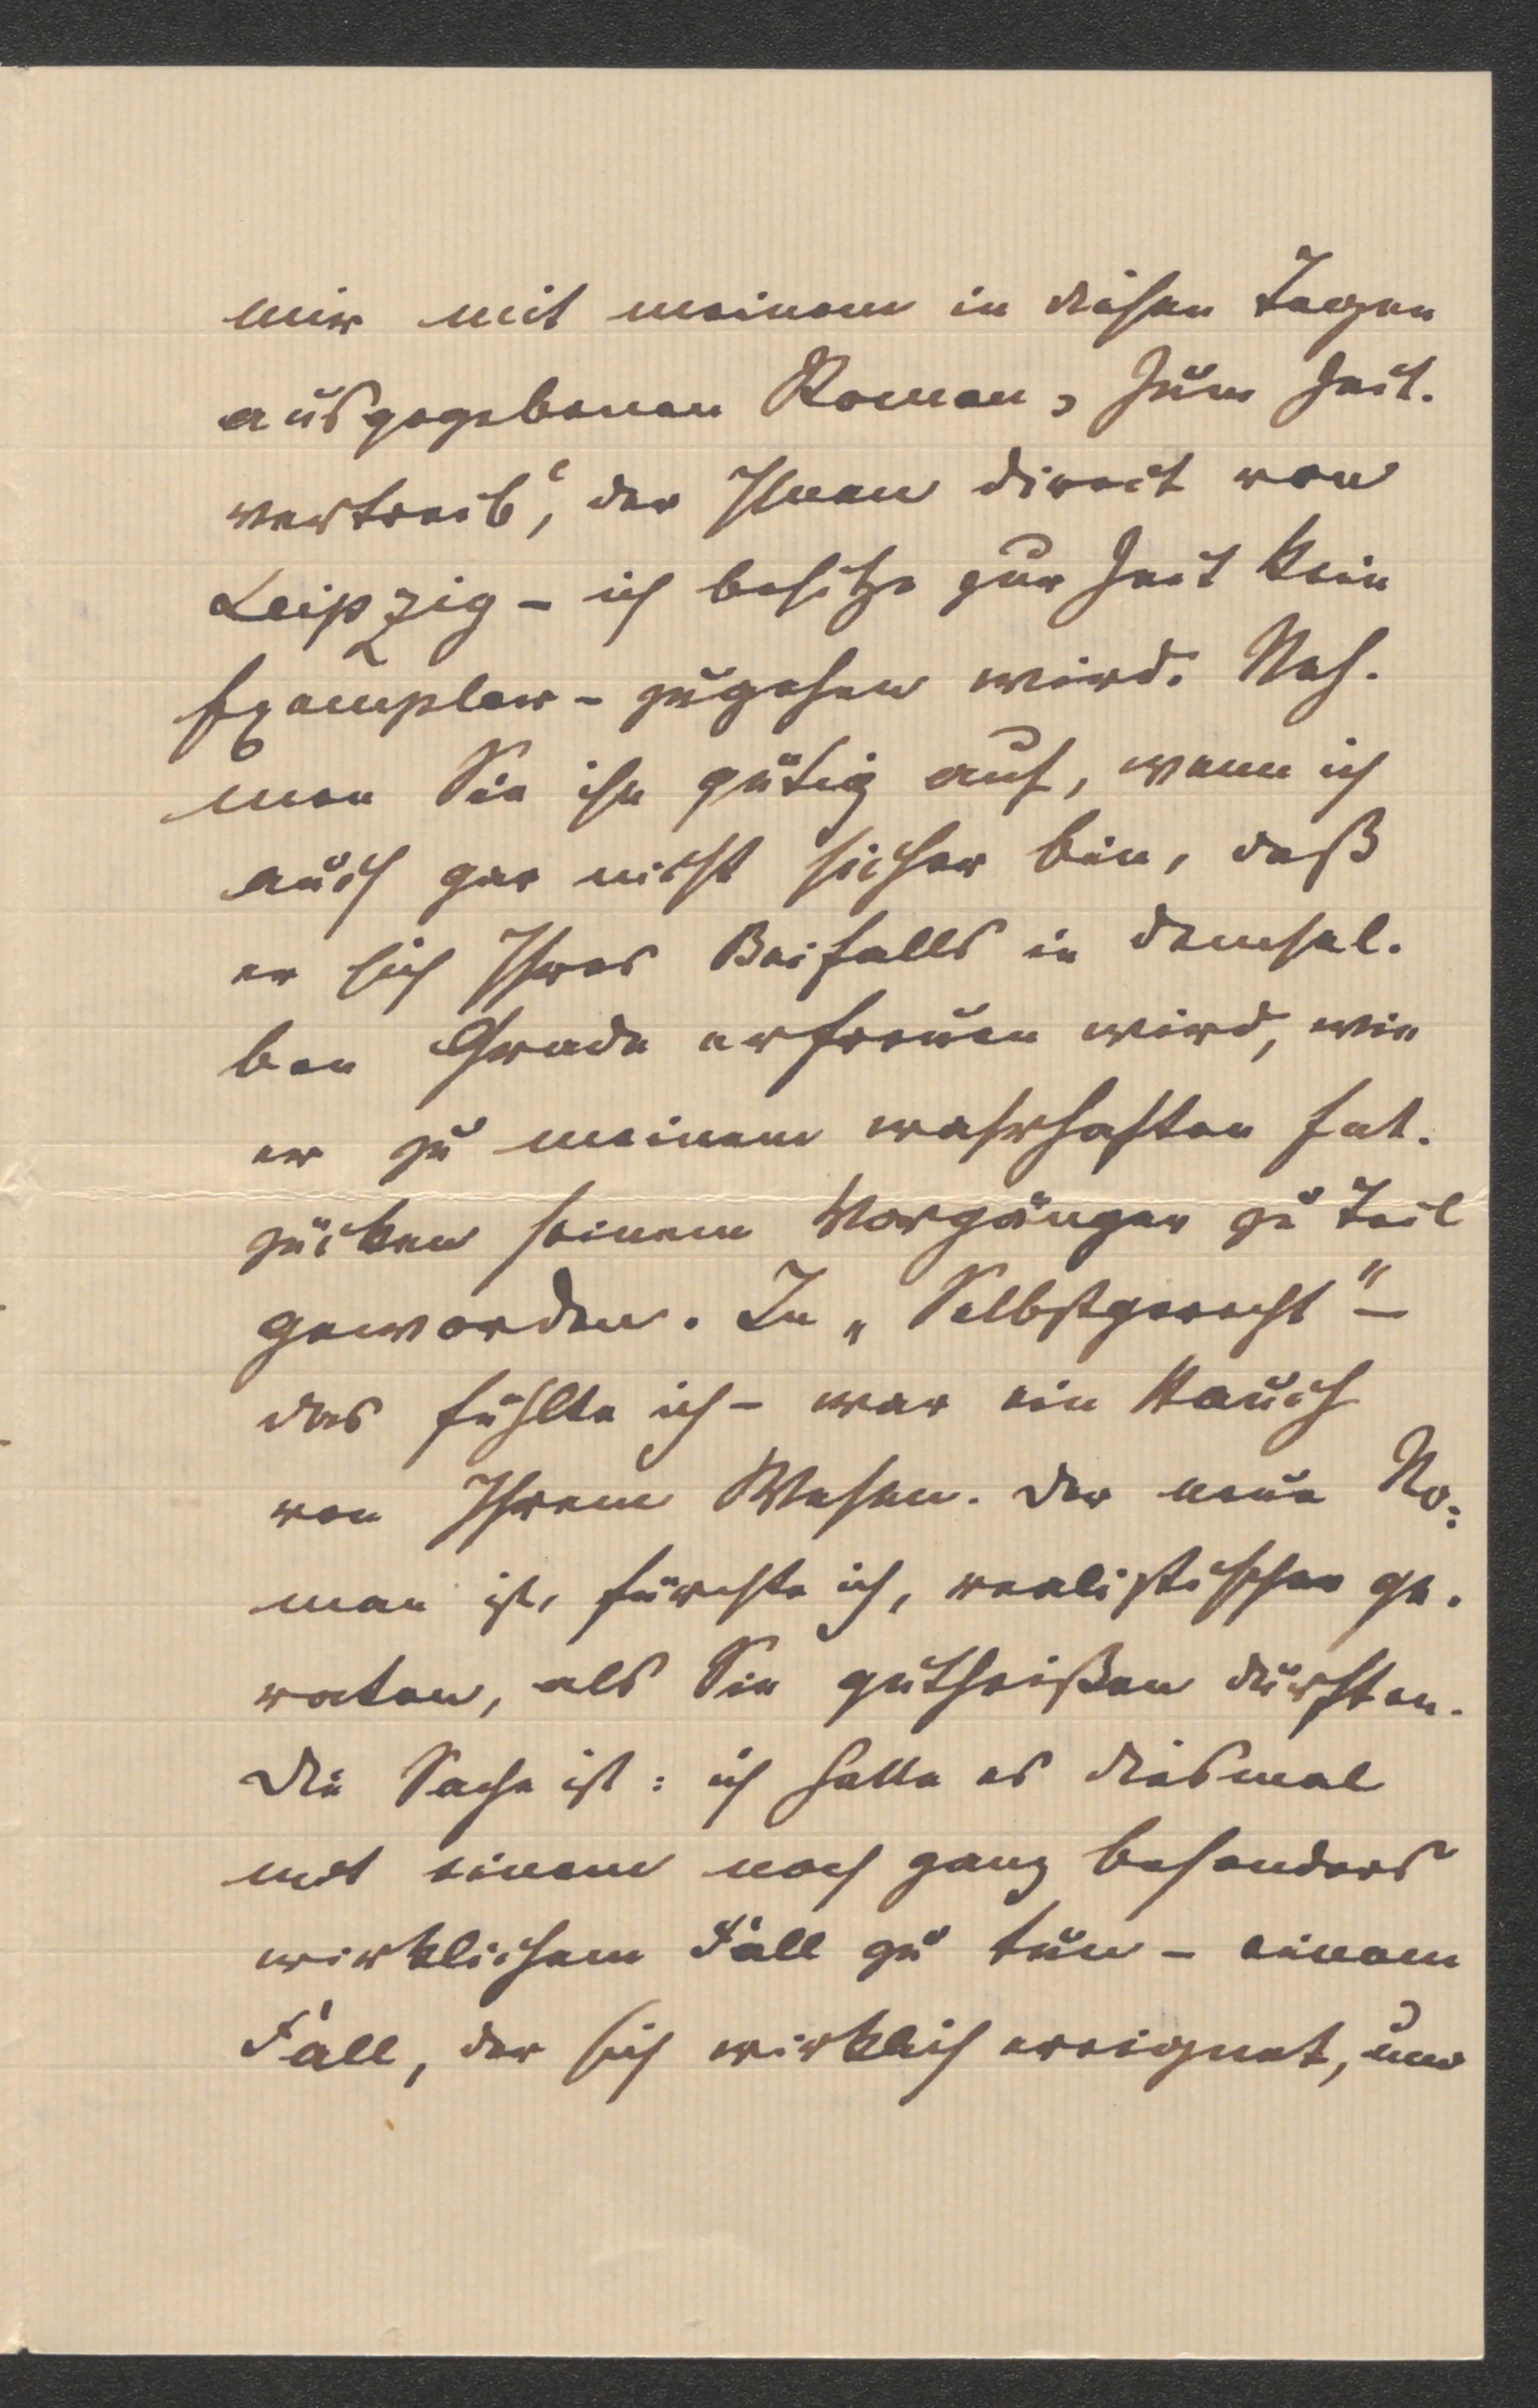 mir mit meinem in diesen Tagen
ausgegebenen Roman, Zum Zeit.
vertreib‘, der Ihnen direct von
Leipzig – ich besitze zur Zeit kein
Exemplar – zugehen wird. Neh.
men Sie ihn gütig auf, wenn ich
auch gar nicht sicher bin, daß
er sich Ihres Beifalls in demsel.
ben Grade erfreuen wird, wie
er zu meinem wahrhaften Ent.
zücken seinem Vorgänger zu Teil
geworden. In „Selbstgerecht“ –
das fühlte ich – war ein Hauch
von Ihrem Wesen. Der neue Ro:
man ist, fürchte ich, realistischer ge.
raten, als Sie gutheißen dürften.
Die Sache ist: ich hatte es diesmal
mit einem noch ganz besonders
wirklichem Fall zu tun – einem
Fall, der sich wirklich ereignet, und